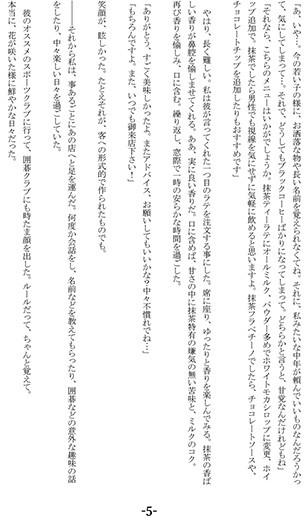 「あ、いや…。今の若い子の様に、お洒落な物や長い名前を覚えられなくてね。それに、私みたいな中年が頼んでいいものなんだろうかっ
て、気にしてしまって…。それで、どうしてもブラックコーヒーばかりになってしまって。どちらかと言うと、甘党なんだけれどもね」
「それなら、こちらのメニューはいかがでしょうか。抹茶ティーラテにオールミルク、パウダー多めでホワイトモカシロップに変更、ホイ
ップ追加で。抹茶でしたら男性でも視線を気にせずに気軽に飲めると思いますよ。抹茶フラペチーノでしたら、チョコレートソースや、
チョコレートチップを追加したりもおすすめです」
やはり、長く難しい。私は彼が言ってくれた一つ目のラテを注文する事にした。席に座り、ゆったりと香りを楽しんでみる。抹茶の香ば
しい香りが鼻腔を愉しませてくれる。ああ、実に良い香りだ。口に含めば、甘さの中に抹茶特有の嫌気の無い苦味と、ミルクのコク。
再び香りを愉しみ、口に含む。繰り返し、窓際で一時の安らかな時間を過ごした。
「ありがとう、すごく美味しかったよ。またアドバイス、お願いしてもいいかな？中々不慣れでね…」
「もちろんですよ。また、いつでも御来店下さい！」
笑顔が、眩しかった。たとえそれが、客への形式的で作られたものでも。
――それから私は、事あるごとにあの店へと足を運んだ。何度か会話をし、名前などを教えてもらったり、囲碁などの意外な趣味の話
をしたり、中々楽しい日々を過ごしていた。
彼のオススメのスポーツクラブに行って、囲碁クラブにも時たま顔を出した。ルールだって、ちゃんと覚えて。
本当に、花が咲いた様に鮮やかな日々だった。
-5-